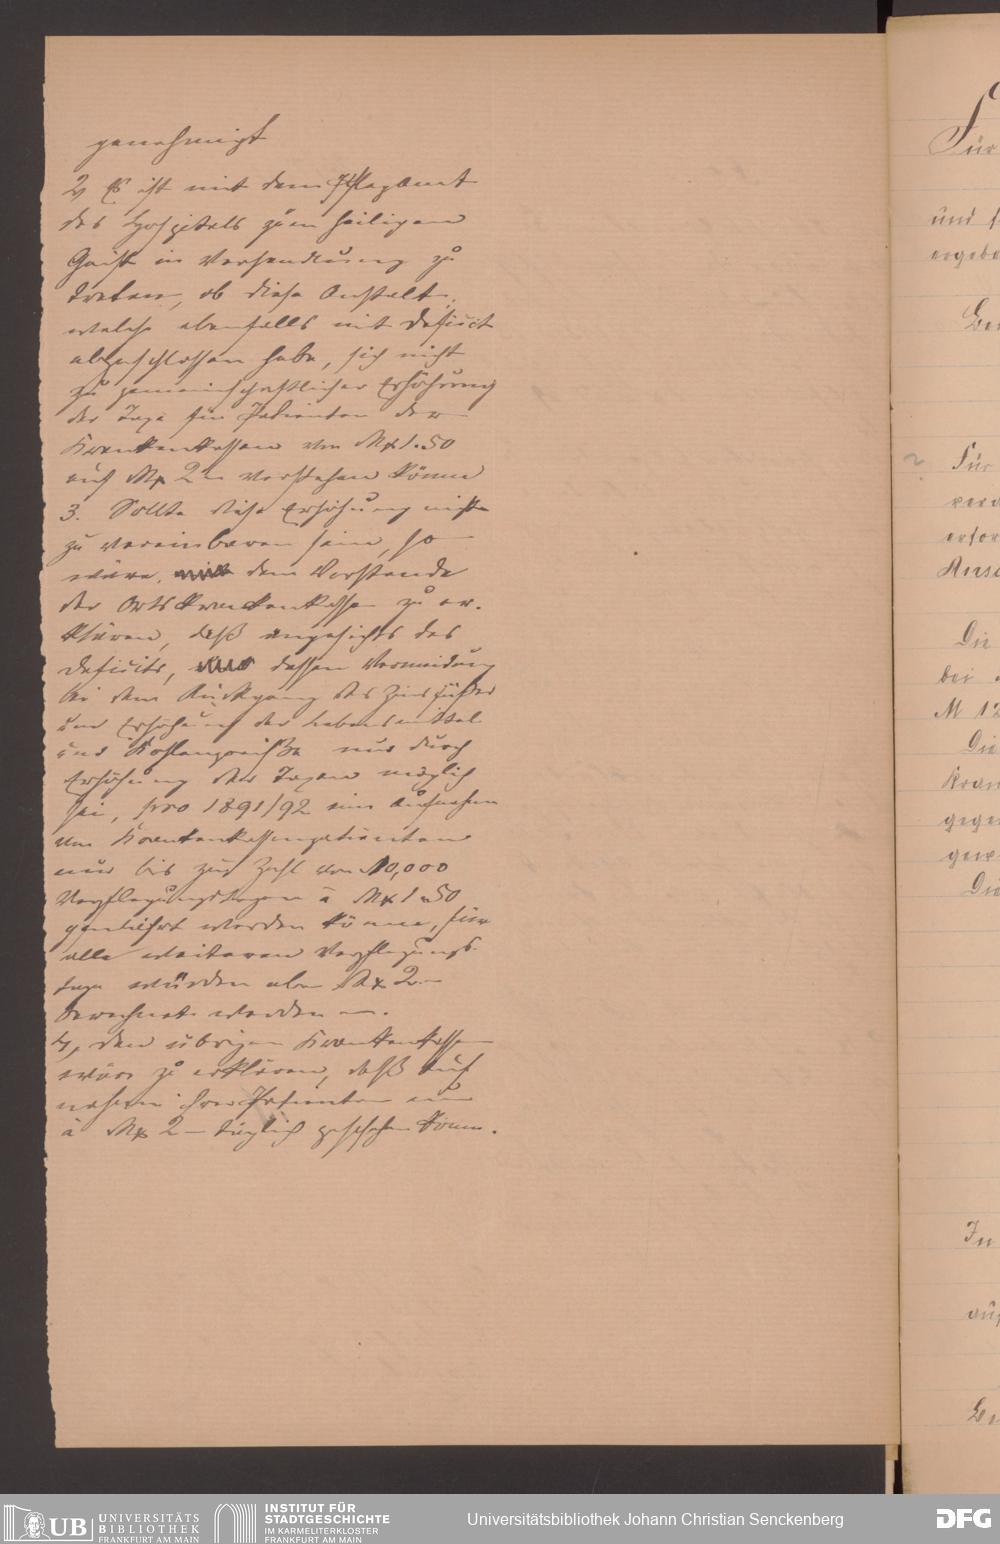 genehmigt
2, Es ist mit dem Pflegamt
des Hospitals zum heiligen
Geist in Verhandlung zu
treten, ob diese Anstalt,
welche ebenfalls mit Deficit
abgeschlossen habe, sich nicht
zu gemeinschaftlicher Erhöhung
der Taxe für Patienten der
Krankenkassen von Mk 1.50
auf Mk 2 – verstehen könne
3. Sollte diese Erhöhung nicht
zu vereinbaren sein, so
wäre, dem Vorstande
der Ortskrankenkasse zu er-
klären, daß angesichts des
Deficits, dessen Vermeidung
bei dem Rückgang des Zinsfußes
und Erhöhung der Lebensmittel
und Kohlenpreise nur durch
Erhöhung der Taxen möglich
sei, pro 1891/92 eine Aufnahme
von Krankenkassenpatienten
nur bis zur Zahl von 10,000
Verpflegungstagen à Mk 1.50
gewährt werden könne, für
alle weiteren Verpflegungs-
tage würden aber Mk 2.–
berechnet werden.
4, den übrigen Krankenkassen
wäre zu erklären, daß Auf-
nahme ihrer Patienten nur
à Mk 2 – täglich geschehen könne.
Für
und
Für
Die
bei
M 12
Die
Kran
gege
Die
In
UB UNIVERSITÄTS
BIBLIOTHEK
FRANKFURT AM MAIN
INSTITUT FÜR
STADTGESCHICHTE
IM KARMELITERKLOSTER
FRANKFURT AM MAIN
Universitätsbibliothek Johann Christian Senckenberg
DFG